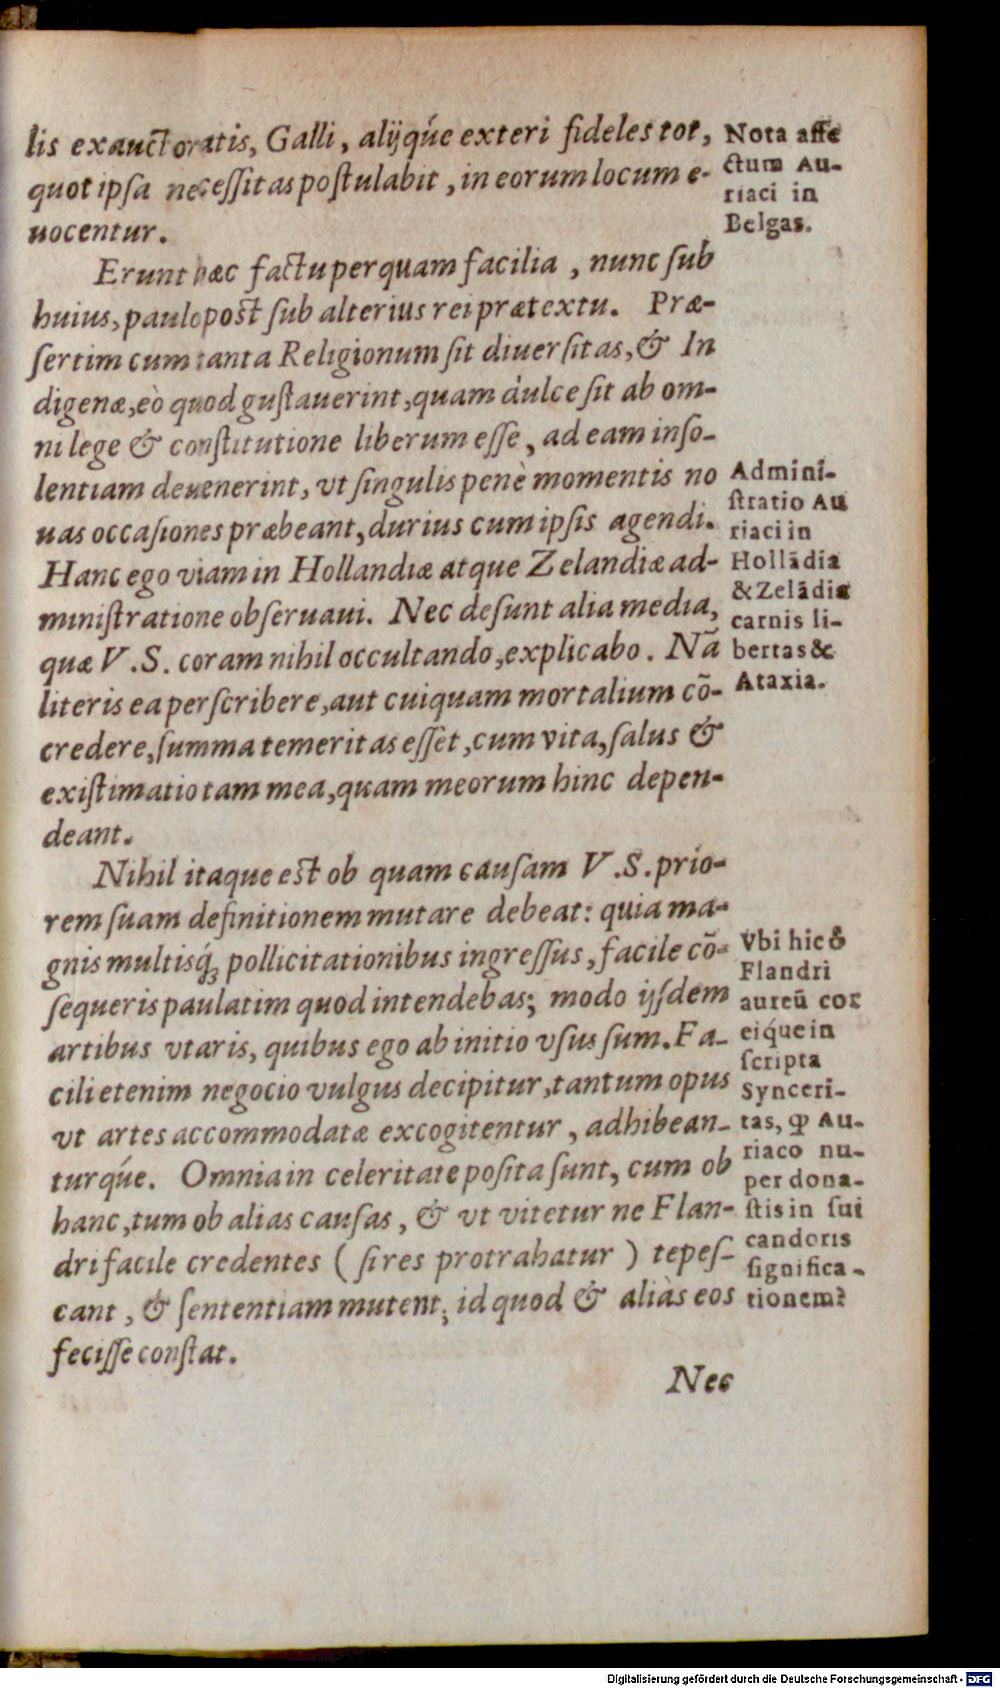 lis exauctoratis, Galli, alijq́ue exteri fideles tot,
quot ipsa neceſſitas poſtulabit, in eorum locum e-
uocentur.
Erunt hæc factu perquam facilia, nunc ſub
huius, paulo poſt ſub alterius rei prætextu. Præ-
ſertim cum tanta Religionum ſit diuerſitas, & In
digenæ, eò quod guſtauerint, quam dulce ſit ab om-
ni lege & conſtitutione liberum eſſe, ad eam inſo-
lentiam deuenerint, vt ſingulis penè momentis no
uas occaſiones præbeant, durius cum ipſis agendi.
Hanc ego viam in Hollandiæ atque Zelandiæ ad-
miniſtratione obſeruaui. Nec deſunt alia media,
quæ V.S. coram nihil occultando, explicabo. Nã
literis ea perſcribere, aut cuiquam mortalium cõ-
credere, ſumma temeritas eſſet, cum vita, ſalus &
exiſtimatio tam mea, quam meorum hinc depen-
deant.
Nihil itaque eſt ob quam cauſam V.S. prio-
rem ſuam definitionem mutare debeat: quia ma-
gnis multisq́; pollicitationibus ingreſſus, facile cõ-
ſequeris paulatim quod intendebas; modo ijſdem
artibus vtaris, quibus ego ab initio vſus ſum. Fa-
cili etenim negocio vulgus decipitur, tantum opus
vt artes accommodatæ excogitentur, adhibean-
turq́ue. Omnia in celeritate poſita ſunt, cum ob
hanc, tum ob alias cauſas, & vt vitetur ne Flan-
dri facile credentes (ſi res protrahatur) tepeſ-
cant, & ſententiam mutent; id quod & aliàs eos
feciſſe conſtat.
Nec
Nota affe
ctum Au-
riaci in
Belgas.
Admini-
ſtratio Au
riaci in
Hollãdia
& Zelãdia
carnis li-
bertas &
Ataxia.
Vbi hic ô
Flandri
aureũ cor
eiq́ue in
ſcripta
Synceri-
tas, ꝙ Au-
riaco nu-
per dona-
ſtis in ſui
candoris
ſignifica-
tionem?
Digitalisierung gefördert durch die Deutsche Forschungsgemeinschaft - DFG